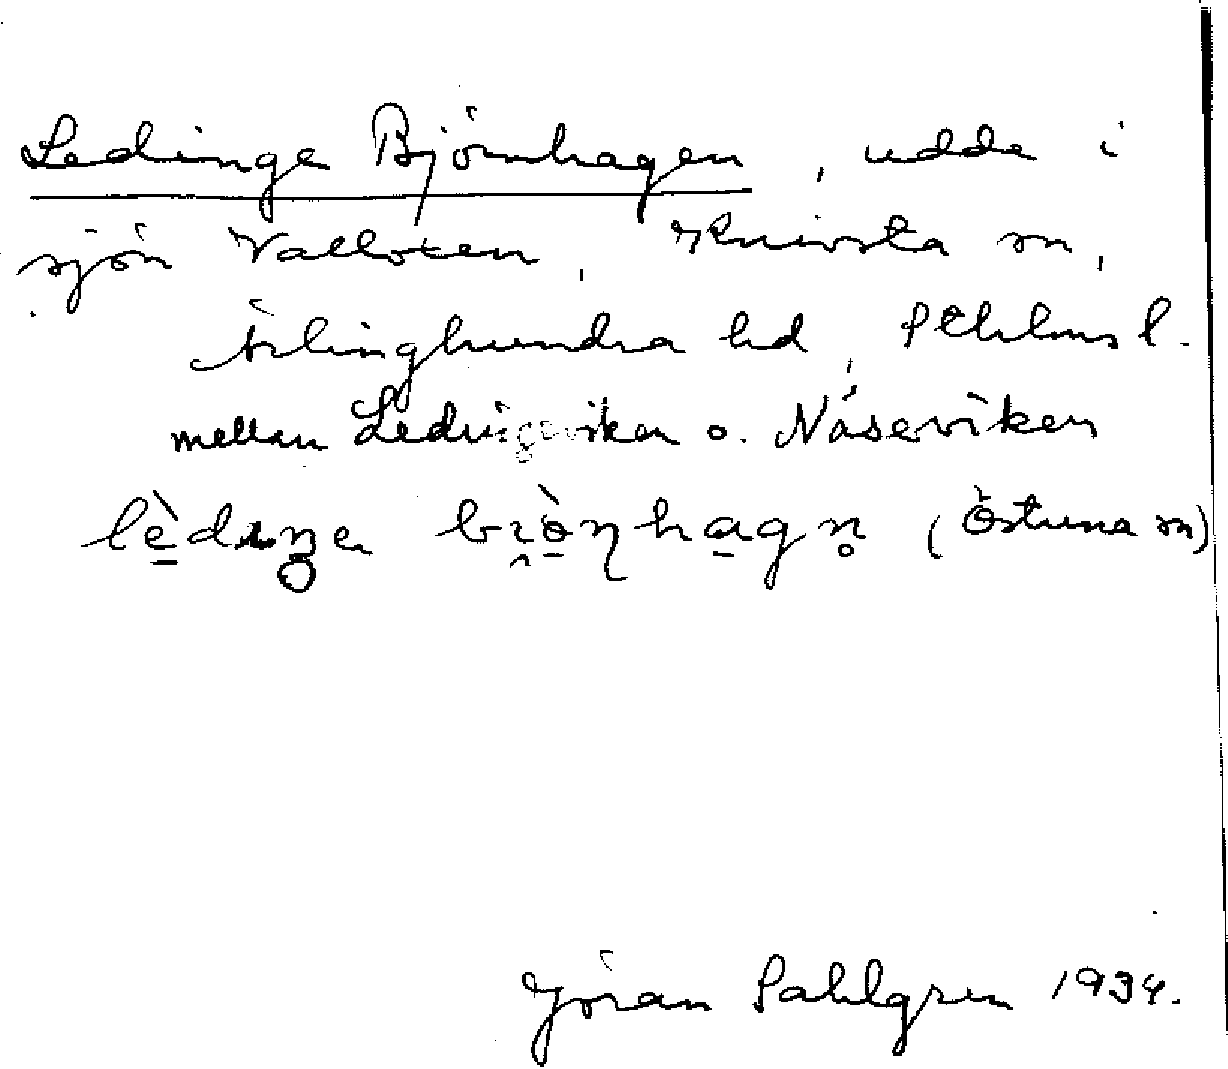 Ledinge Björnhagen, udde i
sjön Valloxen, Knivsta sn,
Ärlinghundra hd, Sthlms l.
mellan Ledingeviken o. Näseviken
(Östuna sn)
Jöran Sahlgren 1934.